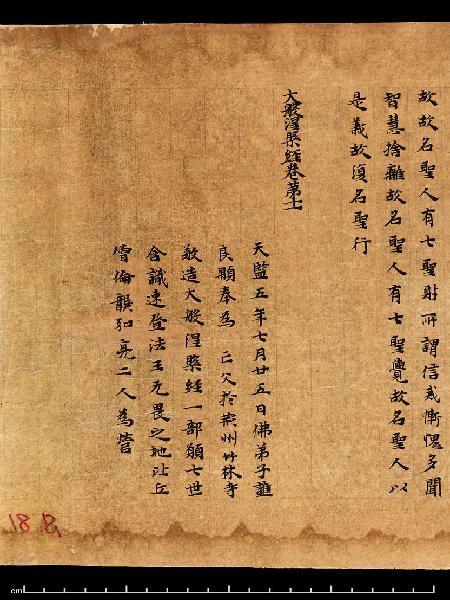 故故名聖人有七聖財所謂信戒慚愧多聞
智慧捨離故名聖人有七聖覺故名聖人以
是義故復名聖行
大般涅槃經卷第十一
天監五年七月廿五日佛弟子譙
良顒奉為 亡父於荊州竹林寺
敬造大般涅槃經一部願七世
含識速登法王无畏之地比丘
僧倫龔弘亮二人為營
cm